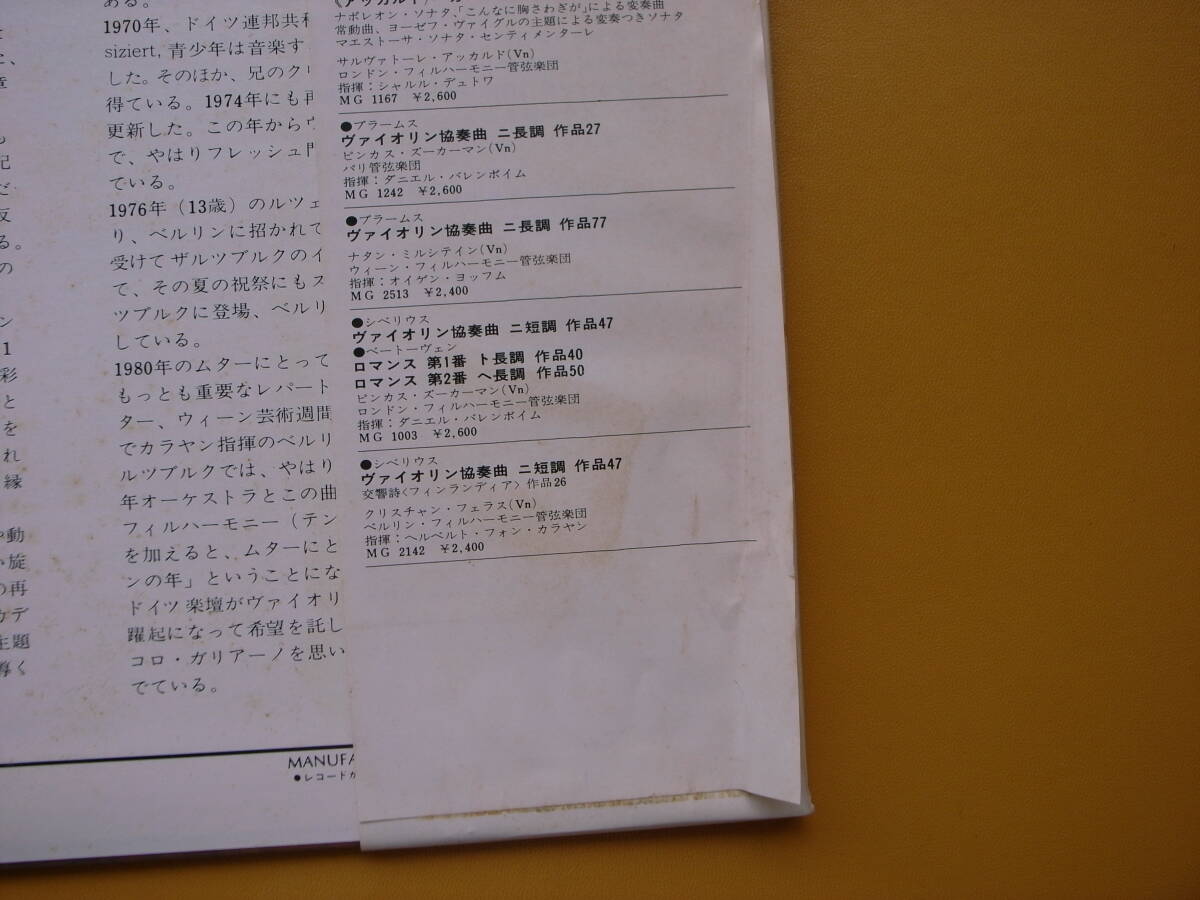 ある。
1970年、ドイツ連邦共和
siziert, 青少年は音楽す
した。そのほか、兄のクリ
得ている。1974年にも再
更新した。この年から
で、やはりフレッシュ門
でいる。
1976年（13歳）のルツェ
り、ベルリンに招かれて
受けてザルツブルクのイ
て、その夏の祝祭にもス
ツブルクに登場、ベルリ
している。
1980年のムターにとって
もっとも重要なレパート
ター、ウィーン芸術週間
でカラヤン指揮のベルリ
ルツブルクでは、やはり
年オーケストラとこの曲
フィルハーモニー（テン
を加えると、ムターにと
ンの年」ということにな
ドイツ楽壇がヴァイオリ
躍起になって希望を託し
コロ・ガリアーノを思い
でている。
MANUFA
●レコードカ
ナポレオン・ソナタ、「こんなに胸さわぎが」による変奏曲
常動曲、ヨーゼフ・ヴァイグルの主題による変奏つきソナタ
マエストーサ・ソナタ・センティメンターレ
サルヴァトーレ・アッカルド(Vn)
ロンドン・フィルハーモニー管弦楽団
指揮：シャルル・デュトワ
MG 1167 ¥2,600
●ブラームス
ヴァイオリン協奏曲 ニ長調 作品27
ピンカス・ズーカーマン(Vn)
パリ管弦楽団
指揮：ダニエル・バレンボイム
MG 1242 ¥2,600
●ブラームス
ヴァイオリン協奏曲 ニ長調 作品77
ナタン・ミルシテイン(Vn)
ウィーン・フィルハーモニー管弦楽団
指揮：オイゲン・ヨッフム
MG 2513 ¥2,400
●シベリウス
ヴァイオリン協奏曲 ニ短調 作品47
●ベートーヴェン
ロマンス 第1番 ト長調 作品40
ロマンス 第2番 ヘ長調 作品50
ピンカス・ズーカーマン(Vn)
ロンドン・フィルハーモニー管弦楽団
指揮：ダニエル・バレンボイム
MG 1003 ¥2,600
●シベリウス
ヴァイオリン協奏曲 ニ短調 作品47
交響詩〈フィンランディア〉作品26
クリスチャン・フェラス(Vn)
ベルリン・フィルハーモニー管弦楽団
指揮：ヘルベルト・フォン・カラヤン
MG 2142 ¥2,400